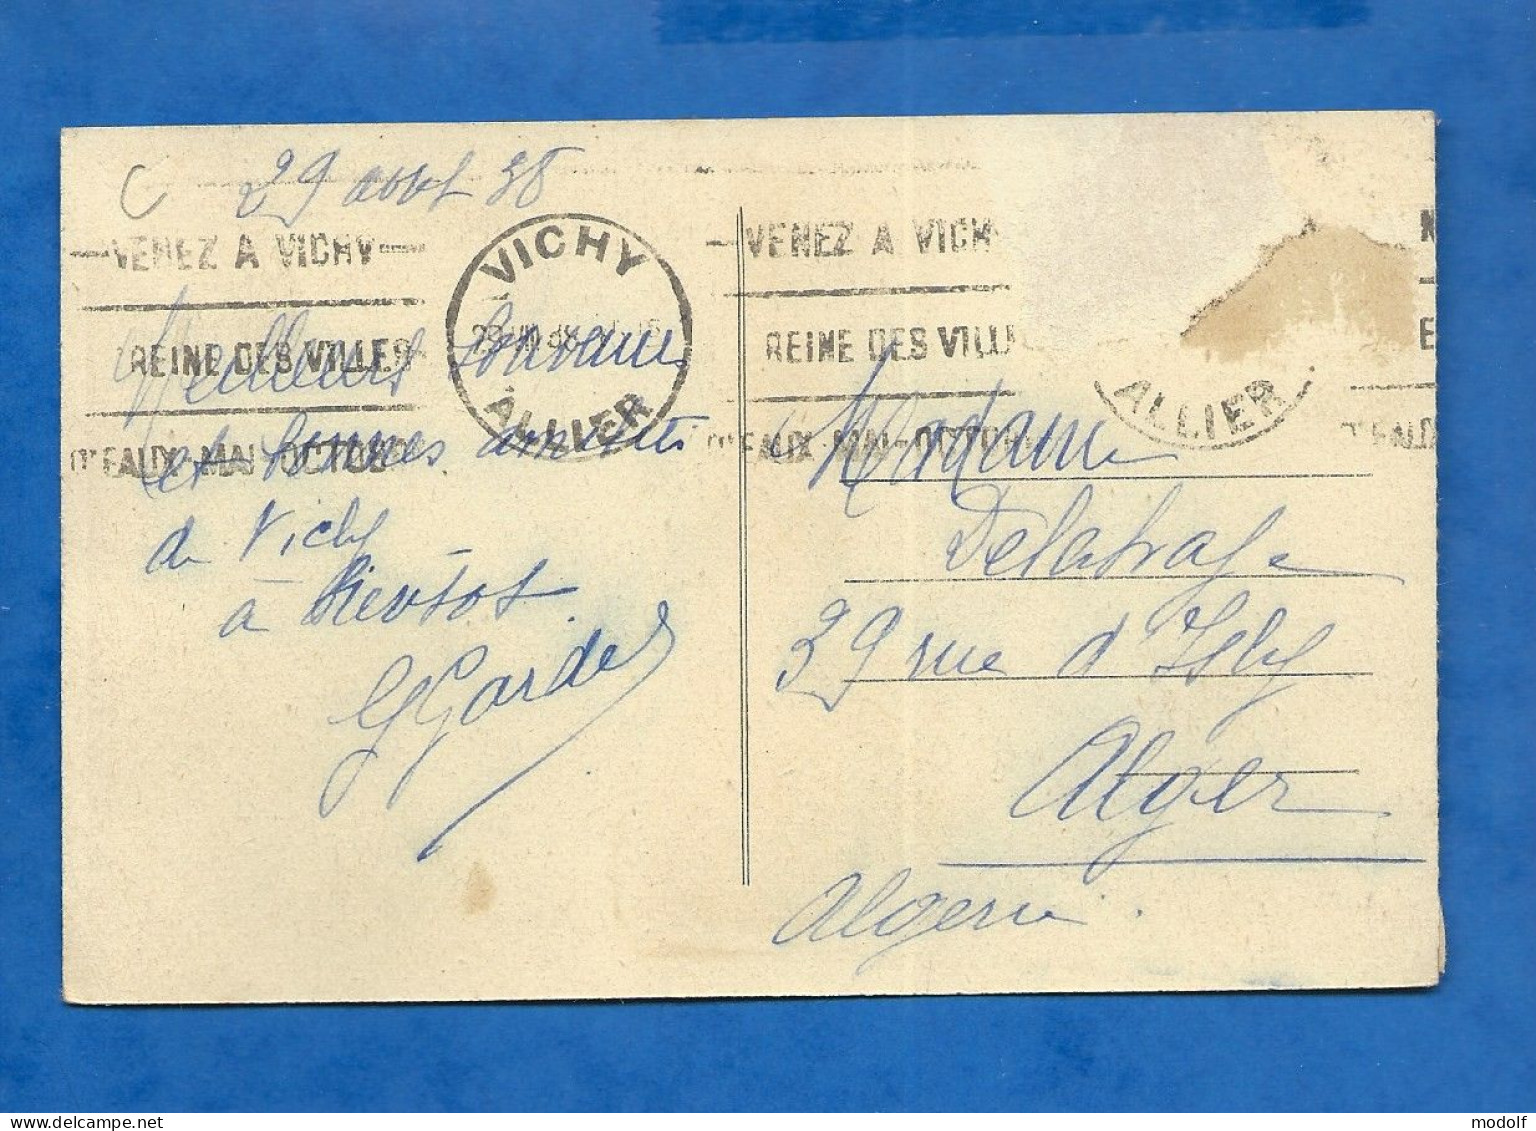 C
29 août 38
VENEZ A VICHY
REINE DES VILLES
D'EAUX - MAI-OCTOBRE
VICHY
ALLIER
Meilleurs Souvenirs
et bonnes amitiés
de Vichy
à Bientôt.
G Gardes
VENEZ A VICH
REINE DES VILL
D'EAUX - MAI-OCTOBR
ALLIER
Madame
Delatraye
39 rue d'Isly
Alger
Algerie.
modolf